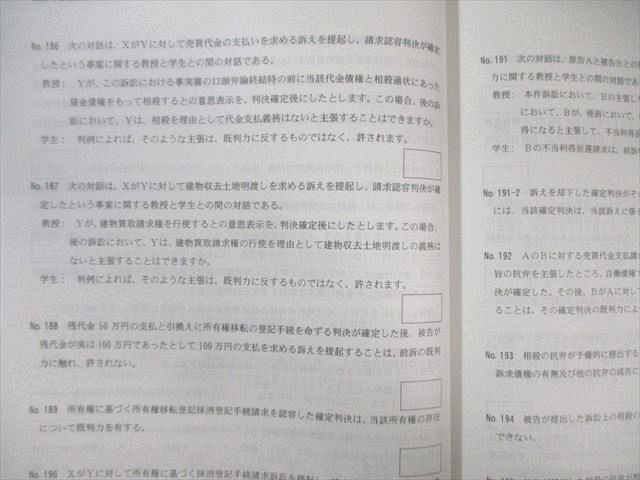 No. 186　次の対話は、XがYに対して売買代金の支払いを求める訴えを提起し、請求認容判決が確定
したという事案に関する教授と学生との間の対話である。
教授：　Yが、この訴訟における事実審の口頭弁論終結時の前に当該代金債権と相殺適状にあった
貸金債権をもって相殺するとの意思表示を、判決確定後にしたとします。この場合、後の訴
訟において、Yは、相殺を理由として代金支払義務はないと主張することはできますか。
学生：　判例によれば、そのような主張は、既判力に反するものではなく、許されます。
No. 187　次の対話は、XがYに対して建物収去土地明渡しを求める訴えを提起し、請求認容判決が確
定したという事案に関する教授と学生との間の対話である。
教授：　Yが、建物買取請求権を行使するとの意思表示を、判決確定後にしたとします。この場合、
後の訴訟において、Yは、建物買取請求権の行使を理由として建物収去土地明渡しの義務は
ないと主張することはできますか。
学生：　判例によれば、そのような主張は、既判力に反するものではなく、許されます。
No. 188　残代金50万円の支払と引換えに所有権移転の登記手続を命ずる判決が確定した後、被告が
残代金が実は100万円であったとして100万円の支払を求める訴えを提起することは、前訴の既判
力に触れ、許されない。
No. 189　所有権に基づく所有権移転登記抹消登記手続請求を認容した確定判決は、当該所有権の存在
について既判力を有する。
No. 190　XがYに対して所有権に基づく抹消登記手続請求訴訟を提起し
No. 191　次の対話は、原告Aと被告Bとの
力に関する教授と学生との間の対話であ
教授：　本件訴訟において、Bの主張し
において、Bが、後訴において、
得になると主張して、不当利得
学生：　Bの不当利得返還請求は、前訴
No. 191-2　訴えを却下した確定判決がそ
には、当該確定判決は、当該訴えに係る
No. 192　AのBに対する売買代金支払請
旨の抗弁を主張したところ、自働債権
決が確定した。その後、BがAに対して
ることは、その確定判決の既判力によ
No. 193　相殺の抗弁が予備的に提出する
訴求債権の有無及び他の抗弁の成否に
No. 194　被告が提出した訴訟上の相殺の
できない。